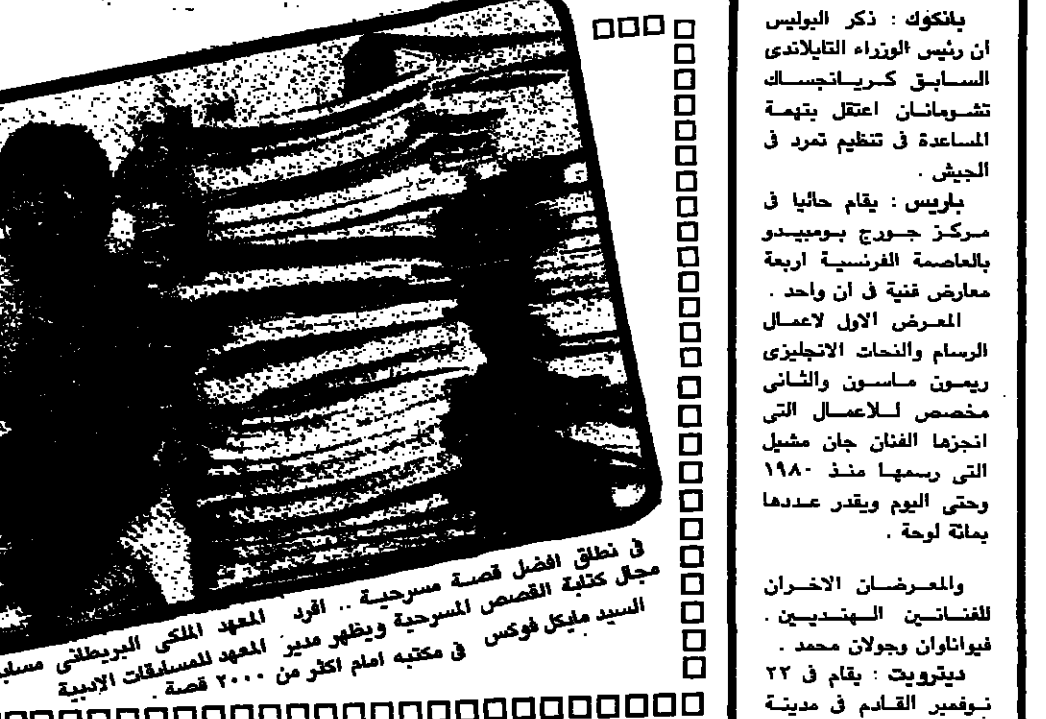 بانكوك : ذكر البوليس
ان رئيس الوزراء التايلاندى
السابق كريانجساك
تشومانان اعتقل بتهمة
المساعدة فى تنظيم تمرد فى
الجيش .
باريس : يقام حاليا فى
مركز جورج بومبيدو
بالعاصمة الفرنسية اربعة
معارض فنية فى ان واحد .
المعرض الاول لاعمال
الرسام والنحات الانجليزى
ريمون ماسون والثانى
مخصص للاعمال التى
انجزها الفنان جان مشيل
التى رسمها منذ ١٩٨٠
وحتى اليوم ويقدر عددها
بمائة لوحة .
والمعرضان الاخران
للفنانين الهنديين .
فيواناوان وجولان محمد .
ديترويت : يقام فى ٢٢
نوفمبر القادم فى مدينة
فى نطاق افضل قصة مسرحية .. اقرد المعهد الملكى البريطانى
مجال كتابة القصص المسرحية ويظهر مدير المعهد للمسابقات الادبية
السيد مايكل فوكس فى مكتبه امام اكثر من ٢٠٠٠ قصة .